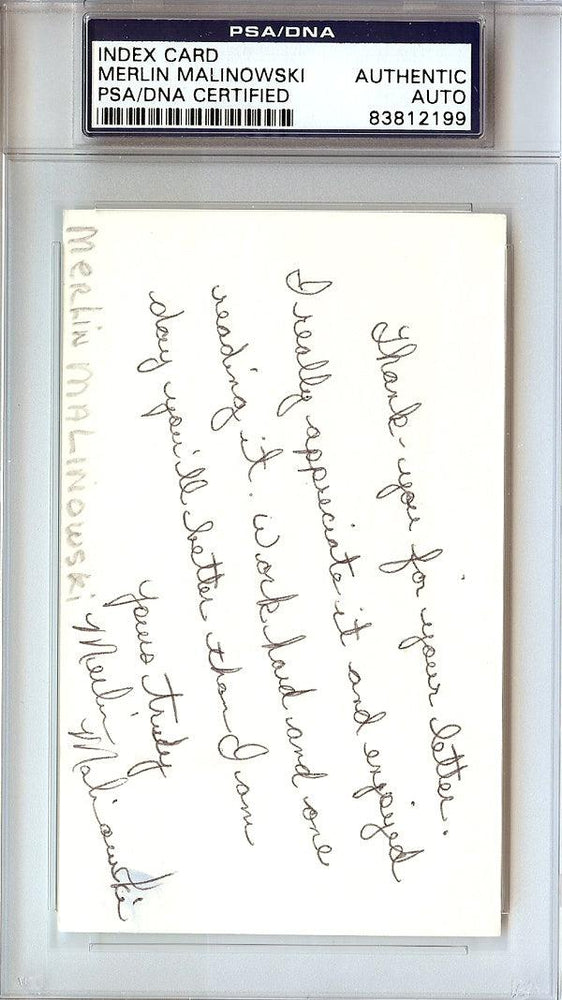 PSA/DNA
INDEX CARD
MERLIN MALINOWSKI AUTHENTIC
PSA/DNA CERTIFIED AUTO
83812199
Thank-you for your letter.
I really appreciate it and enjoyed
reading it. Work hard and one
day you'll better than I am
yours truly
Merlin Malinowski
MERLIN MALINOWSKI